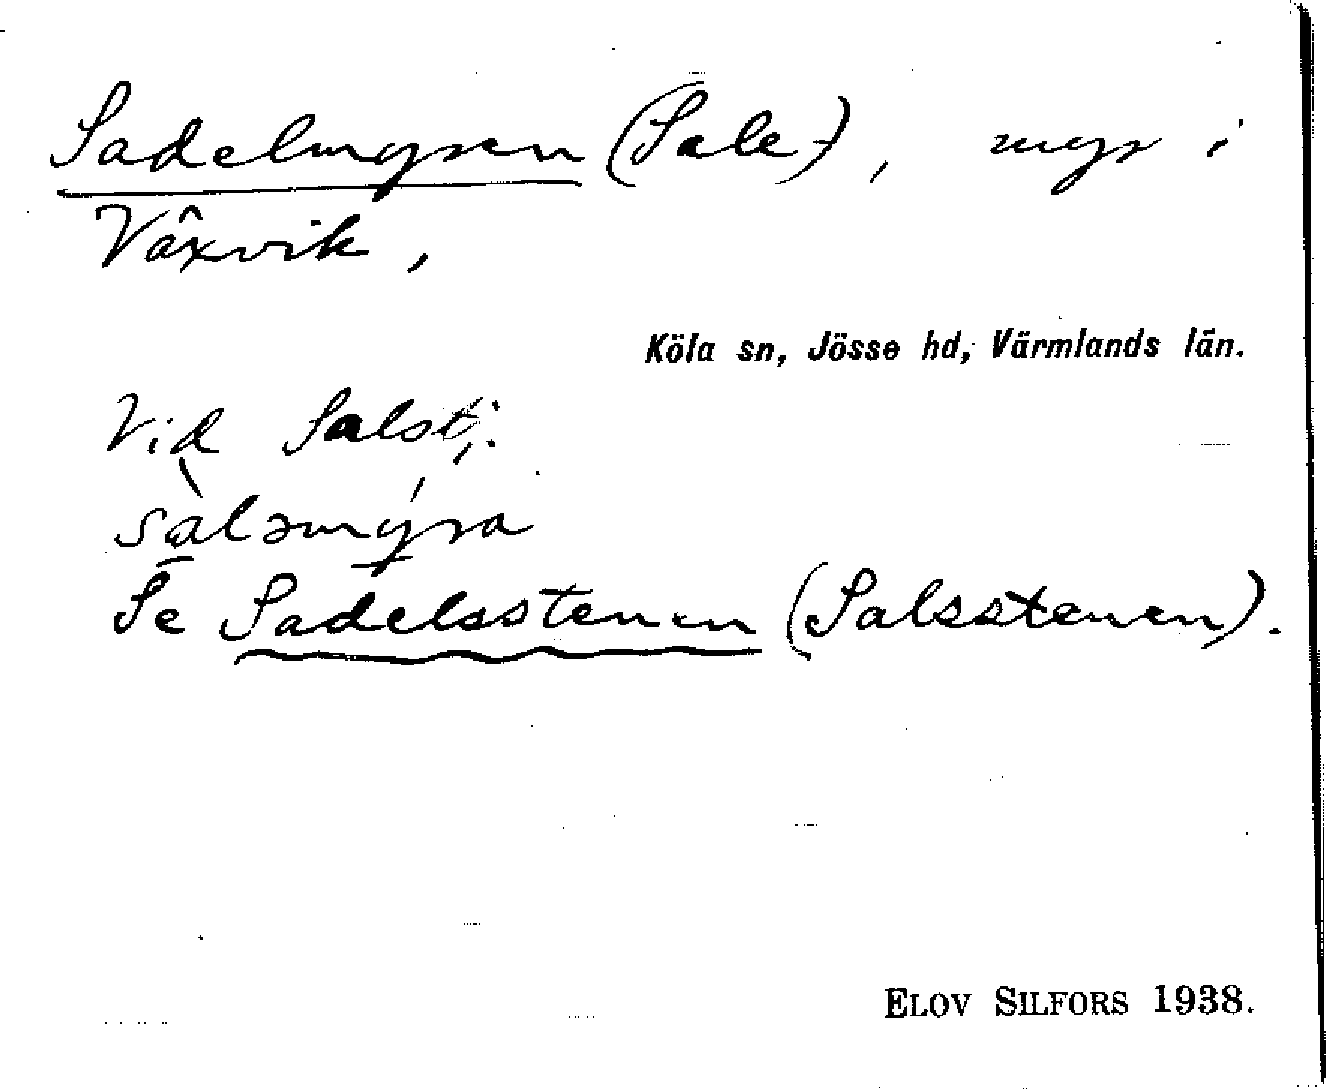 Sadelmyren (Sale-), myr i
Växvik,
Köla sn, Jösse hd, Värmlands län.
Vid Salstj:
sàləmýra
Se Sadelsstenen (Salsstenen).
ELOV SILFORS 1938.